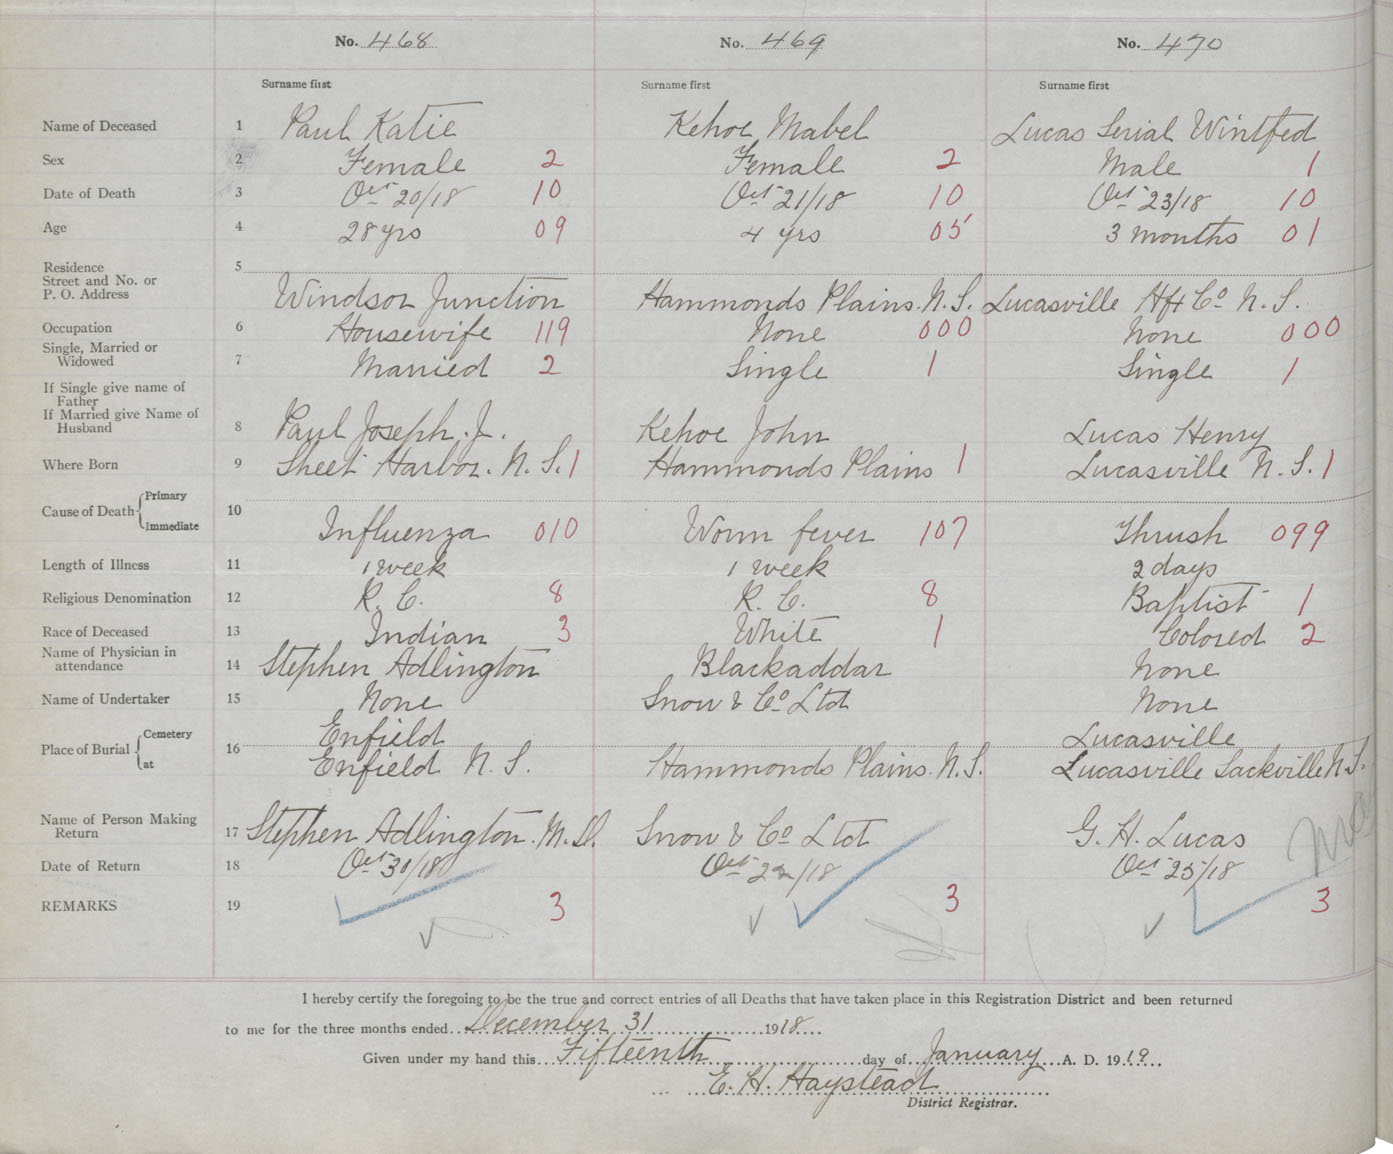 No. 468 No. 469 No. 470
Surname first Surname first Surname first
Name of Deceased 1 Paul Katie Kehoe Mabel Lucas Serial Wintfed
Sex 2 Female 2 Female 2 Male 1
Date of Death 3 Oct 20/18 10 Oct 21/18 10 Oct 23/18 10
Age 4 28 yrs 09 4 yrs 05 3 months 01
Residence
Street and No. or
P. O. Address 5 Windsor Junction Hammonds Plains. N. S. Lucasville Hfx Co N. S.
Occupation 6 Housewife 119 None 000 None 000
Single, Married or
Widowed 7 Married 2 Single 1 Single 1
If Single give name of
Father
If Married give Name of
Husband 8 Paul Joseph. J. Kehoe John Lucas Henry
Where Born 9 Sheet Harbor. N. S. 1 Hammonds Plains 1 Lucasville N. S. 1
Cause of Death Primary
Immediate 10 Influenza 010 Worm fever 107 Thrush 099
Length of Illness 11 1 week 1 week 2 days
Religious Denomination 12 R. C. 8 R. C. 8 Baptist 1
Race of Deceased 13 Indian 3 White 1 Colored 2
Name of Physician in
attendance 14 Stephen Adlington Blackaddar None
Name of Undertaker 15 None Snow & Co Ltd None
Place of Burial Cemetery 16 Enfield Lucasville
at Enfield N. S. Hammonds Plains. N. S. Lucasville Sackville N. S.
Name of Person Making
Return 17 Stephen Adlington. M. D. Snow & Co Ltd G. H. Lucas
Date of Return 18 Oct 30/18 Oct 22/18 Oct 25/18
REMARKS 19 3 3 3
I hereby certify the foregoing to be the true and correct entries of all Deaths that have taken place in this Registration District and been returned
to me for the three months ended December 31 1918
Given under my hand this Fifteenth day of January A. D. 1919
E. H. Haystead
District Registrar.